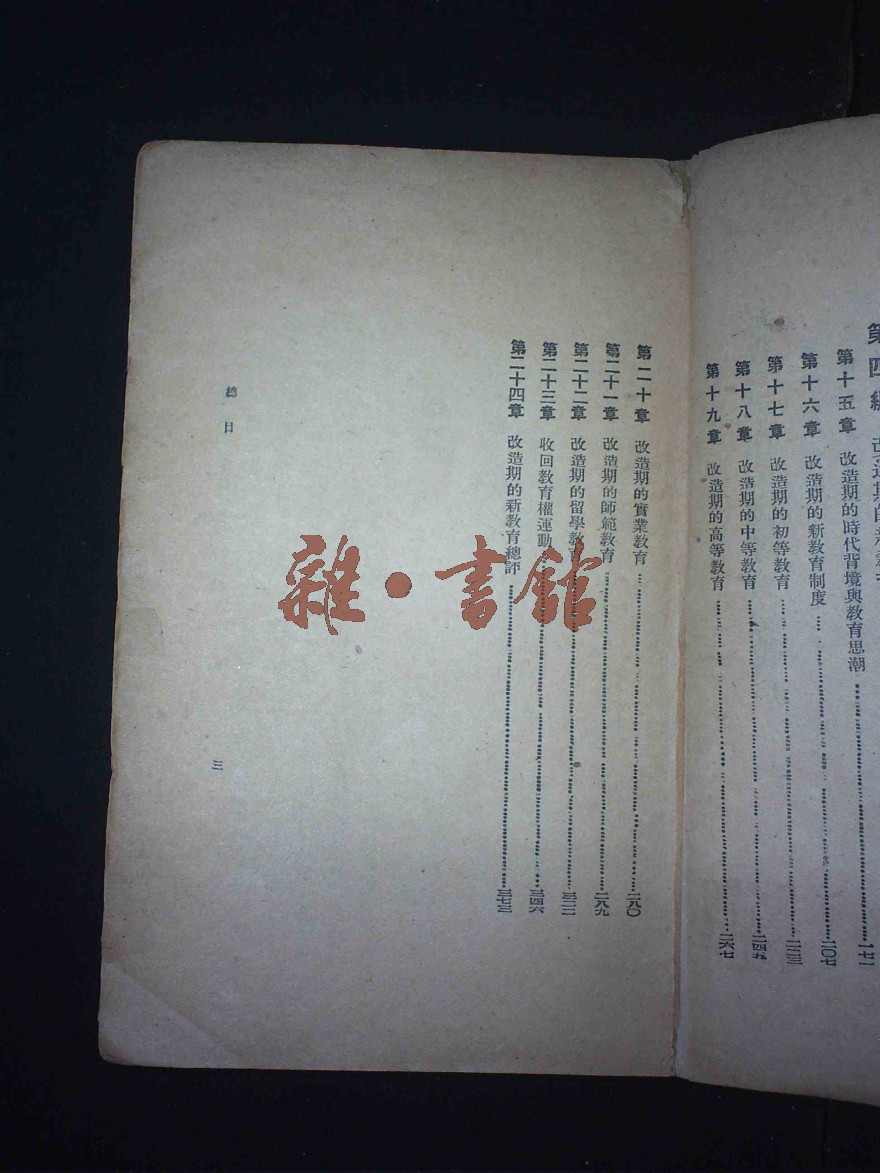 第四編 改造期的新教育
第十五章 改造期的時代背境與教育思潮……一七一
第十六章 改造期的新教育制度……二〇七
第十七章 改造期的初等教育……二二三
第十八章 改造期的中等教育……二四五
第十九章 改造期的高等教育……二六七
第二十章 改造期的實業教育……二八〇
第二十一章 改造期的師範教育……二八九
第二十二章 改造期的留學教育……三二二
第二十三章 收回教育權運動……三四六
第二十四章 改造期的新教育總評……三七三
總目
三
雜·書館